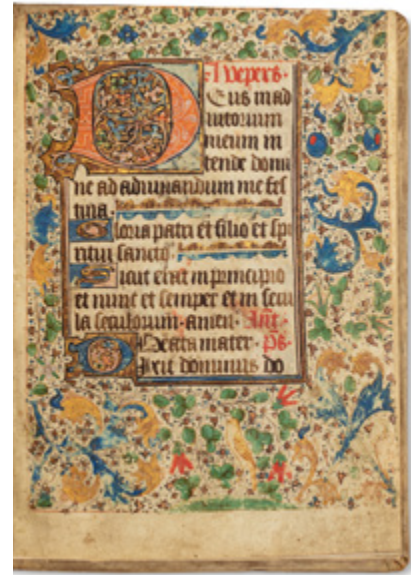 A vepers.
Deus in ad
iutorium
meum in
tende domi
ne ad adiuuandum me fes
tina.
Gloria patri et filio et spi
ritui sancto.
Sicut erat in principio
et nunc et semper et in secu
la seculorum. amen. Ant.
Beata mater. Ps.
Dixit dominus do